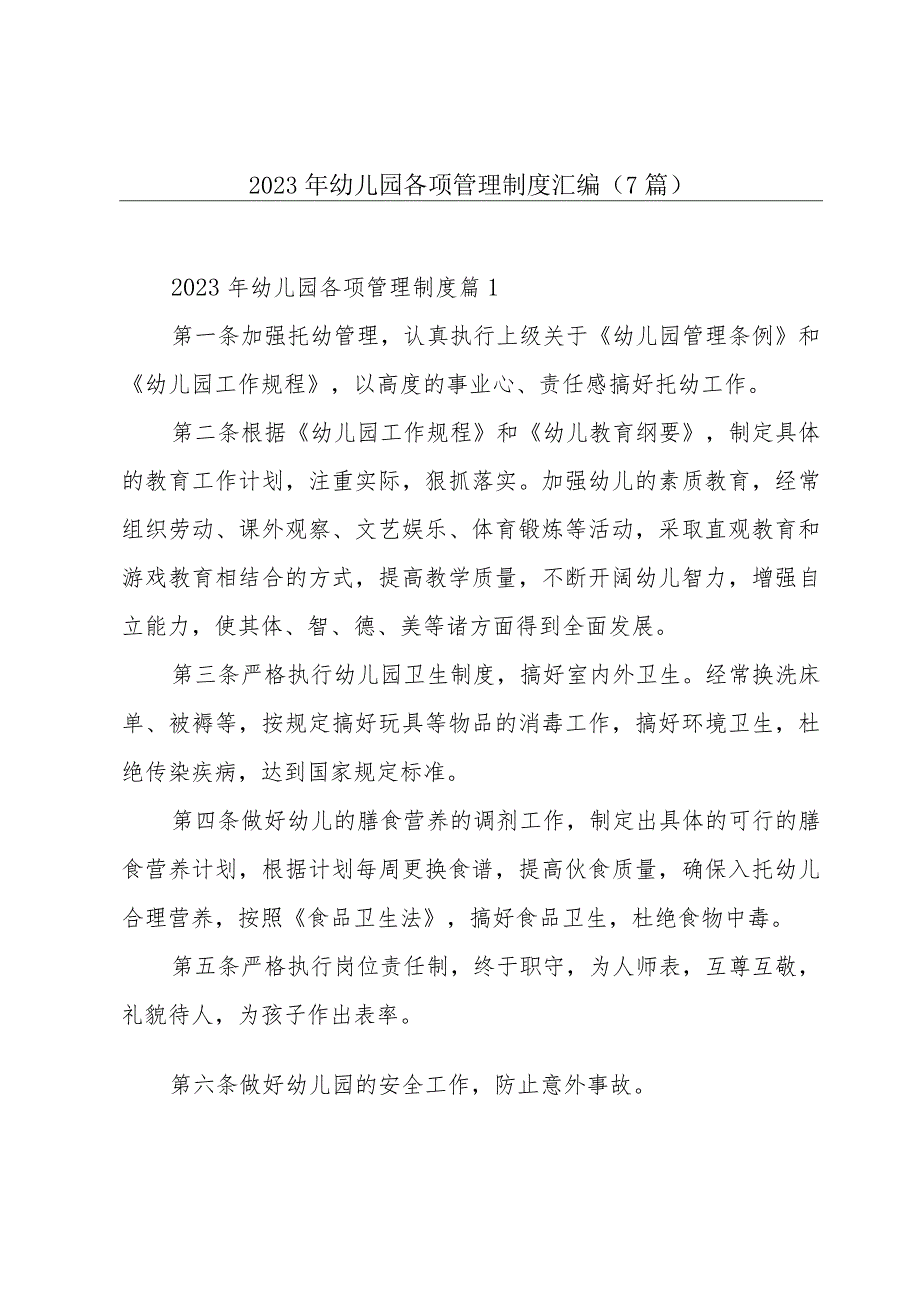 2023 年幼儿园各项管理制度汇编（7 篇）
2023 年幼儿园各项管理制度篇 1
第一条加强托幼管理，认真执行上级关于《幼儿园管理条例》和
《幼儿园工作规程》，以高度的事业心、责任感搞好托幼工作。
第二条根据《幼儿园工作规程》和《幼儿教育纲要》，制定具体
的教育工作计划，注重实际，狠抓落实。加强幼儿的素质教育，经常
组织劳动、课外观察、文艺娱乐、体育锻炼等活动，采取直观教育和
游戏教育相结合的方式，提高教学质量，不断开阔幼儿智力，增强自
立能力，使其体、智、德、美等诸方面得到全面发展。
第三条严格执行幼儿园卫生制度，搞好室内外卫生。经常换洗床
单、被褥等，按规定搞好玩具等物品的消毒工作，搞好环境卫生，杜
绝传染疾病，达到国家规定标准。
第四条做好幼儿的膳食营养的调剂工作，制定出具体的可行的膳
食营养计划，根据计划每周更换食谱，提高伙食质量，确保入托幼儿
合理营养，按照《食品卫生法》，搞好食品卫生，杜绝食物中毒。
第五条严格执行岗位责任制，终于职守，为人师表，互尊互敬，
礼貌待人，为孩子作出表率。
第六条做好幼儿园的安全工作，防止意外事故。